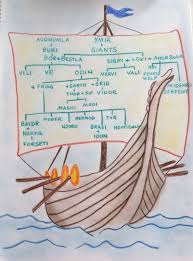 AUDHUMLA YMIR
BURI GIANTS
BOR+BESTLA SIGYN + LOKI + ANGRBODA
VILI VE ODIN NARVI VALI HEL FENRIS WOLF MIDGARD SERPENT
+ FRIGG + EARTH + GRID
THOR+SIF VIDAR
MAGNI MODI
BALDR HODER HERMOD TYR
+ NANNA HEIMDALL
FORSETI BRAGI + IDUN